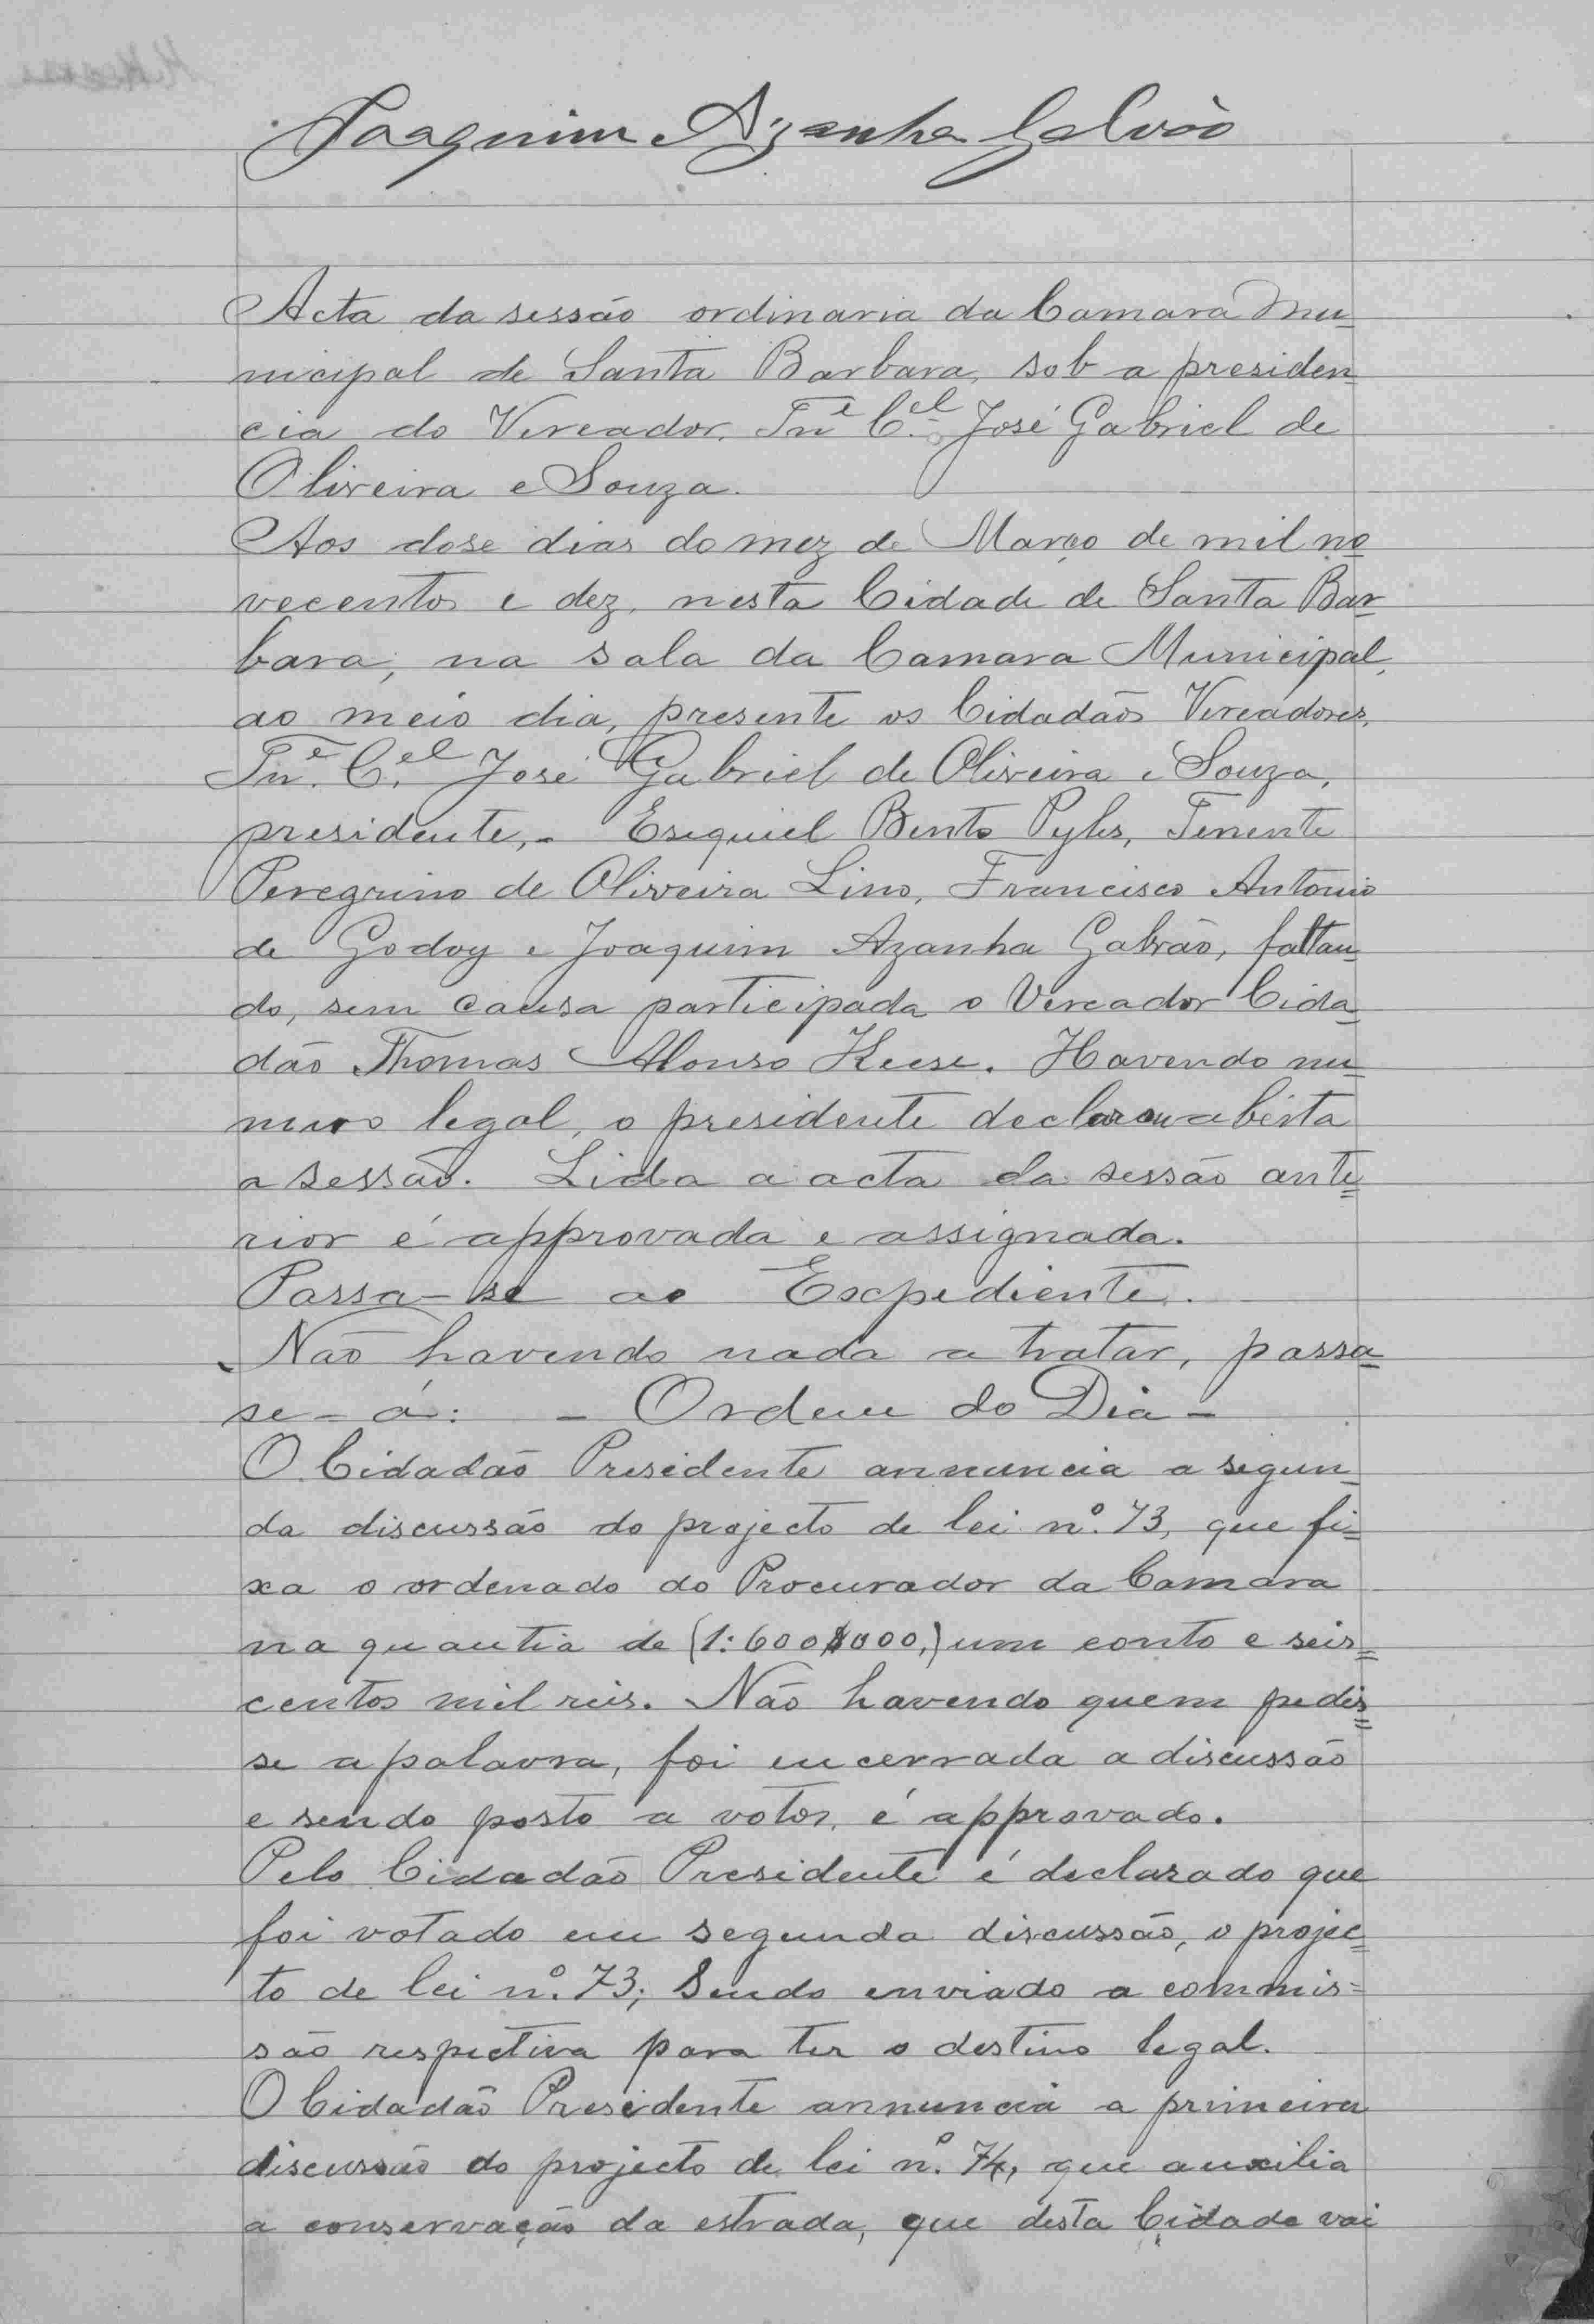 Joaquim Azanha Galvão
Acta da sessão ordinaria da Camara Mu-
nicipal de Santa Barbara, sob a presiden-
cia do Vereador, Tn.e C.el José Gabriel de
Oliveira e Souza.
Aos dose dias do mez de Março de mil no-
vecentos e dez, nesta Cidade de Santa Bar-
bara, na sala da Camara Municipal,
ao meio dia, presente os Cidadãos Vereadores,
Tn.e C.el José Gabriel de Oliveira e Souza,
presidente,- Esequiel Bento Pyles, Tenente
Peregrino de Oliveira Lino, Francisco Antonio
de Godoy e Joaquim Azanha Galvão, faltan-
do, sem causa participada o Vereador Cida-
dão Thomas Alonso Keese. Havendo nu-
mero legal, o presidente declarou aberta
a sessão. Lida a acta da sessão ante=
rior é approvada e assignada.
Passa-se ao Expediente.
Não havendo nada a tratar, passa-
se-á: - Ordem do Dia -
O Cidadão Presidente annuncia a segun-
da discussão do projecto de lei nº. 73, que fi=
xa o ordenado do Procurador da Camara
na quantia de (1:600$000,) um conto e seis=
centos mil reis. Não havendo quem pedis=
se a palavra, foi encerrada a discussão
e sendo posto a votos, é approvado.
Pelo Cidadão Presidente é declarado que
foi votado em segunda discussão, o projec=
to de lei nº. 73; Sendo enviado a commis=
são respectiva para ter o destino legal.
O Cidadão Presidente annuncia a primeira
discussão do projecto de lei nº. 74, que auxilia
a conservação da estrada, que desta Cidade vai